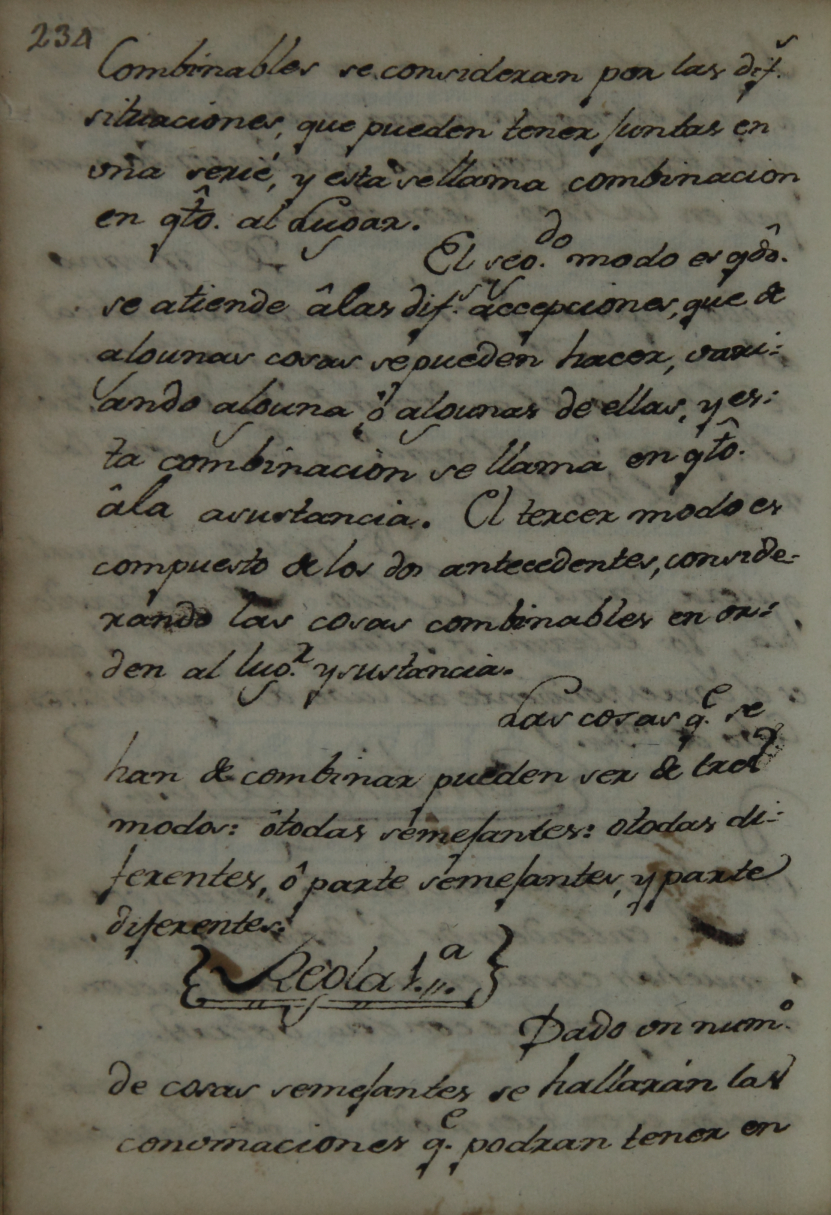 234
Combinables se consideran por las dif.s
situaciones, que pueden tener juntas en
vna serie, y esta se llama combinacion
en qto. al Lugar.
El seg.do modo es qdo.
se atiende âlas dif.s accepciones, que de
algunas cosas se pueden hacer, vari-
ando alguna, ô algunas de ellas, y es-
ta combinacion se llama en qto.
âla asustancia. El tercer modo es
compuesto de los dos antecedentes, conside-
rando las cosas combinables en or-
den al lug.r y sustancia.
Las cosas q.e se
han de combinar pueden ser de tres
modos: ôtodas semejantes: otodas di-
ferentes, ô parte semejantes, y parte
diferentes.
{Regla 1.a}
Dado vn num.o
de cosas semejantes se hallarán las
convinaciones q.e podran tener en